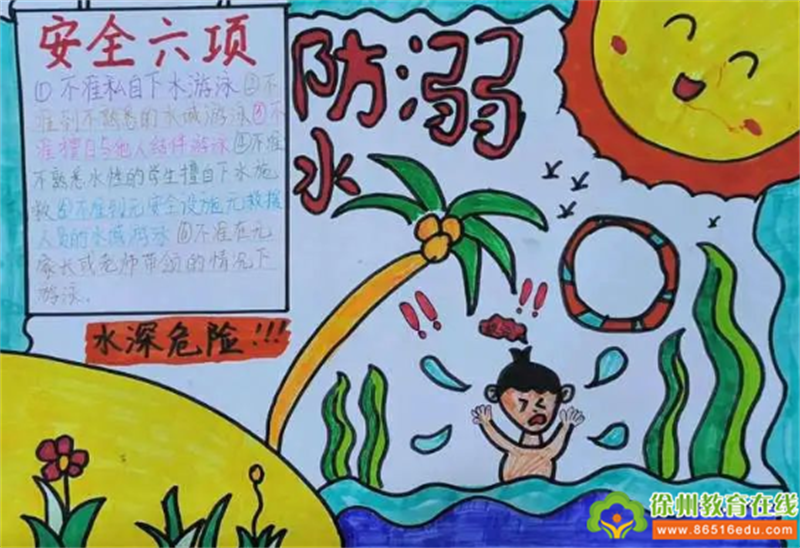 安全六项
①不准私自下水游泳②不
准到不熟悉的水域游泳③不
准擅自与他人结伴游泳④不准
不熟悉水性的学生擅自下水施
救⑤不准到无安全设施无救援
人员的水域游泳⑥不准在无
家长或老师带领的情况下
游泳。
防溺
水
水深危险!!!
!!
!!
徐州教育在线
www.86516edu.com